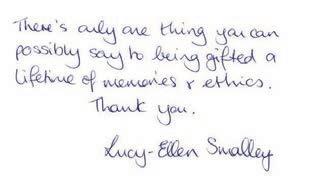 There's only one thing you can
possibly say to being gifted a
lifetime of memories & ethics.
Thank you.
Lucy-Ellen Smalley